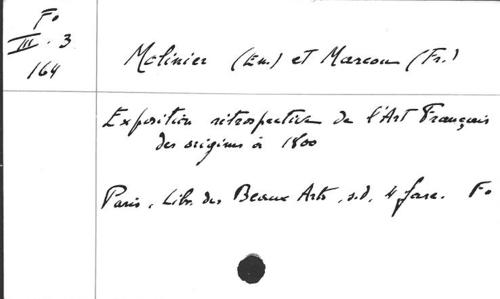 Fo
III. 3
164
Molinier (Em.) et Marcou (Fr.)
Exposition rétrospective de l'Art Français
des origines à 1800
Paris, Libr. des Beaux Arts, s.d. 4 fasc. Fo